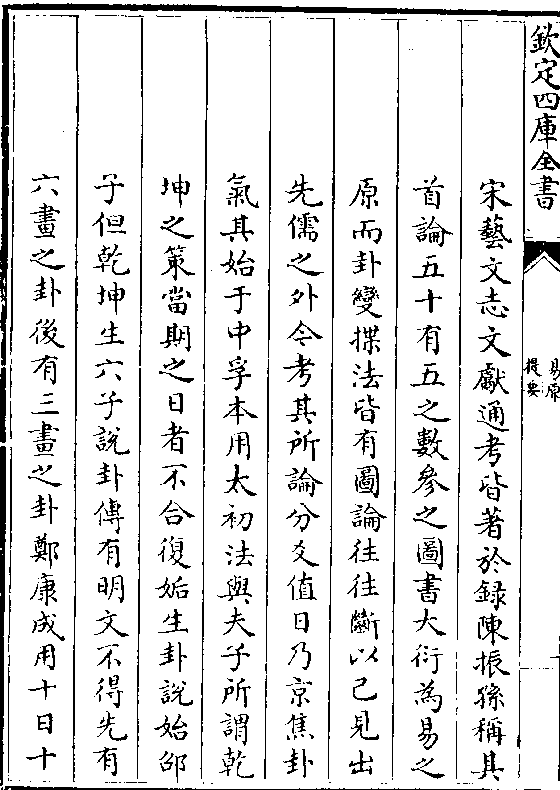 欽定四庫全書
易原
提要
宋藝文志文獻通考皆著於録陳振孫稱其
首論五十有五之數參之圖書大衍為易之
原而卦變揲法皆有圖論往往斷以己見出
先儒之外今考其所論分爻值日乃京焦卦
氣其始于中孚本用太初法與夫子所謂乾
坤之策當期之日者不合復姤生卦說始邵
子但乾坤生六子說卦傳有明文不得先有
六畫之卦後有三畫之卦鄭康成用十日十